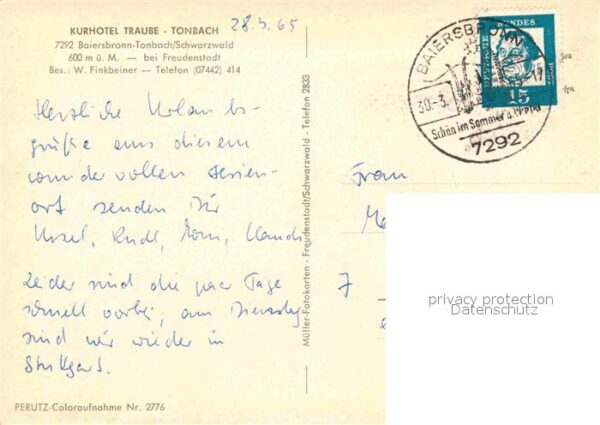 KURHOTEL TRAUBE - TONBACH
7292 Baiersbronn-Tonbach/Schwarzwald
600 m ü. M. — bei Freudenstadt
Bes.: W. Finkbeiner — Telefon (07442) 414
28.3.65
Herzliche Urlaubs-
grüße aus diesem
wundervollen Ferien-
ort senden Dir
Ursel, Rudi,
Leider sind die paar Tage
schnell vorbei, am Dienstag
sind wir wieder in
Stuttgart.
PERUTZ-Coloraufnahme Nr. 2776
Müller-Fotokarten - Freudenstadt/Schwarzwald - Telefon 2833
BAIERSBRONN
30.-3.
Schön im Sommer u. Winter
7292
DEUTSCHE
BUNDES
POST
15
Frau
7
privacy protection
Datenschutz